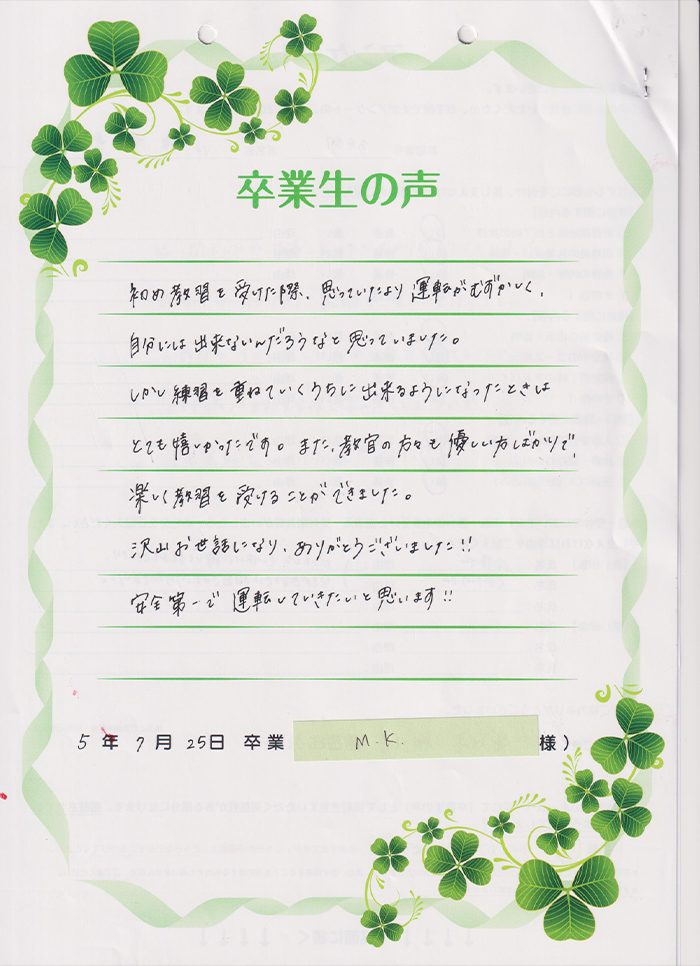 卒業生の声
初め教習を受けた際、思っていたより運転がむずかしく、
自分には出来ないんだろうなと思っていました。
しかし練習を重ねていくうちに出来るようになったときは
とても嬉しかったです。また、教官の方々も優しい方ばかりで、
楽しく教習を受けることができました。
沢山お世話になり、ありがとうございました!!
安全第一で運転していきたいと思います!!
5年7月25日 卒業 M.K. 様)